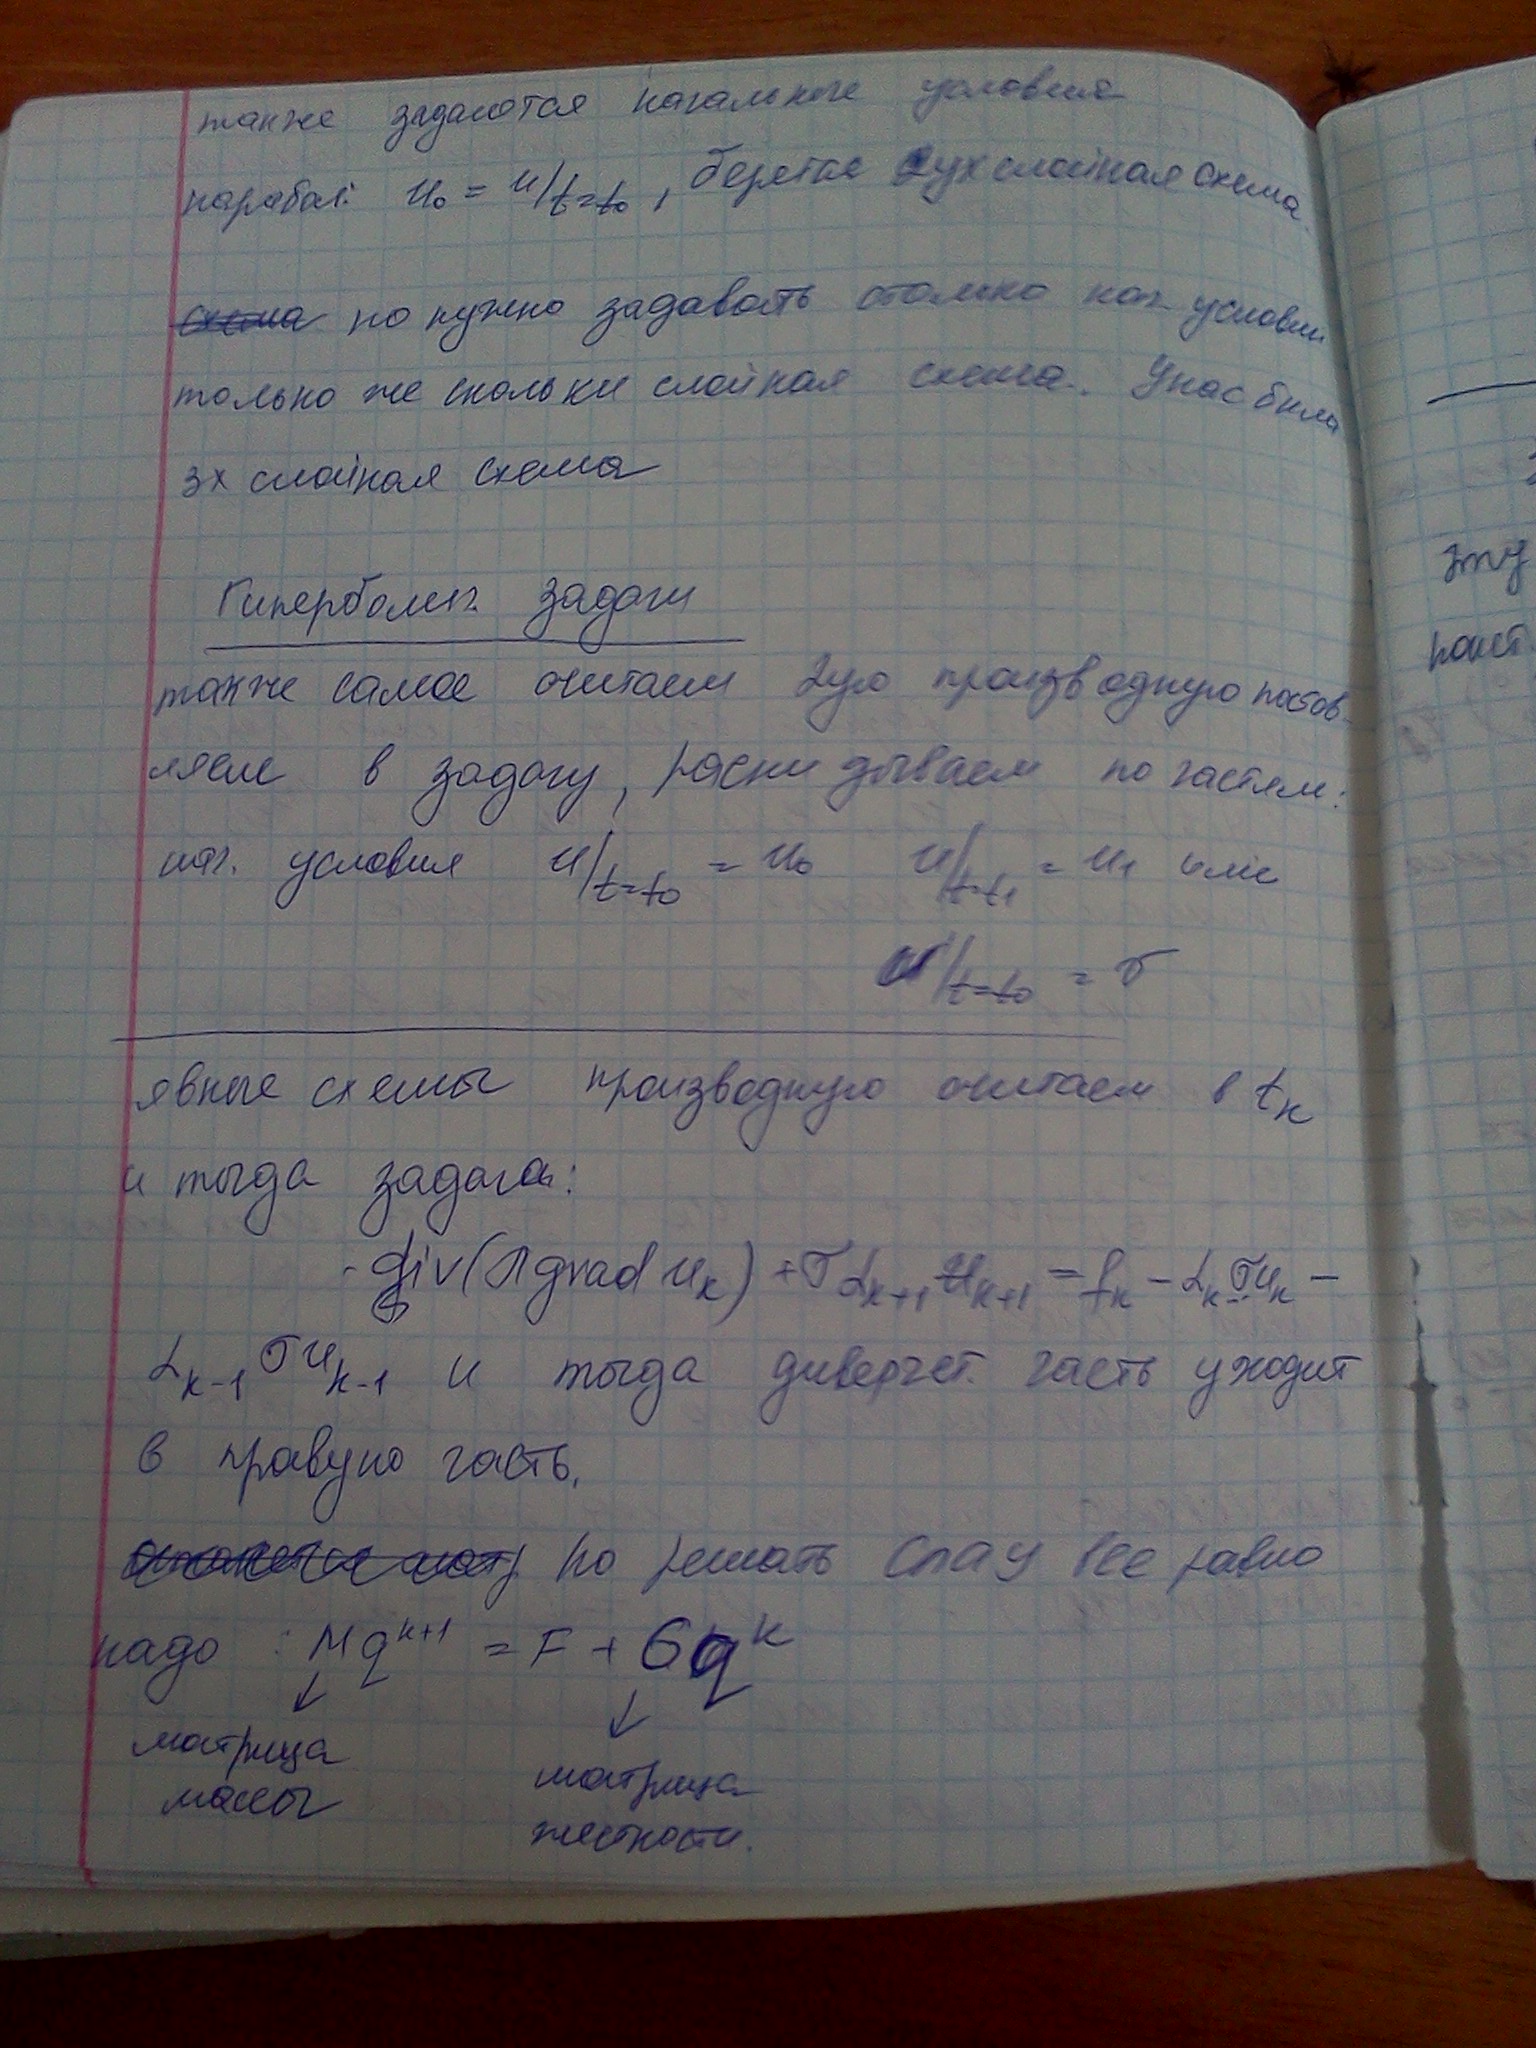 также задаются начальные условия
парабол: u₀ = u/t=t₀, берется 2ух слойная схема.
но нужно задавать столько нач. условий
только же скольки слойная схема. У нас была
3х слойная схема
Гиперболич. задачи
также самое считаем 2ую производную постав-
ляем в задачу, раскидываем по частям:
нач. условия u/t=t₀ = u₀ u/t=t₁ = u₁ или
u'/t=t₀ = σ
явные схемы производную считаем в tₖ
и тогда задача:
-div(λ grad uₖ) + σ αₖ₊₁ uₖ₊₁ = fₖ - αₖ σ uₖ -
αₖ₋₁ σ uₖ₋₁ и тогда дивергет. часть уходит
в правую часть.
но решать СЛАУ все равно
надо : M qᵏ⁺¹ = F + G qᵏ
↓ ↓
матрица матрица
массы жесткости.
эту